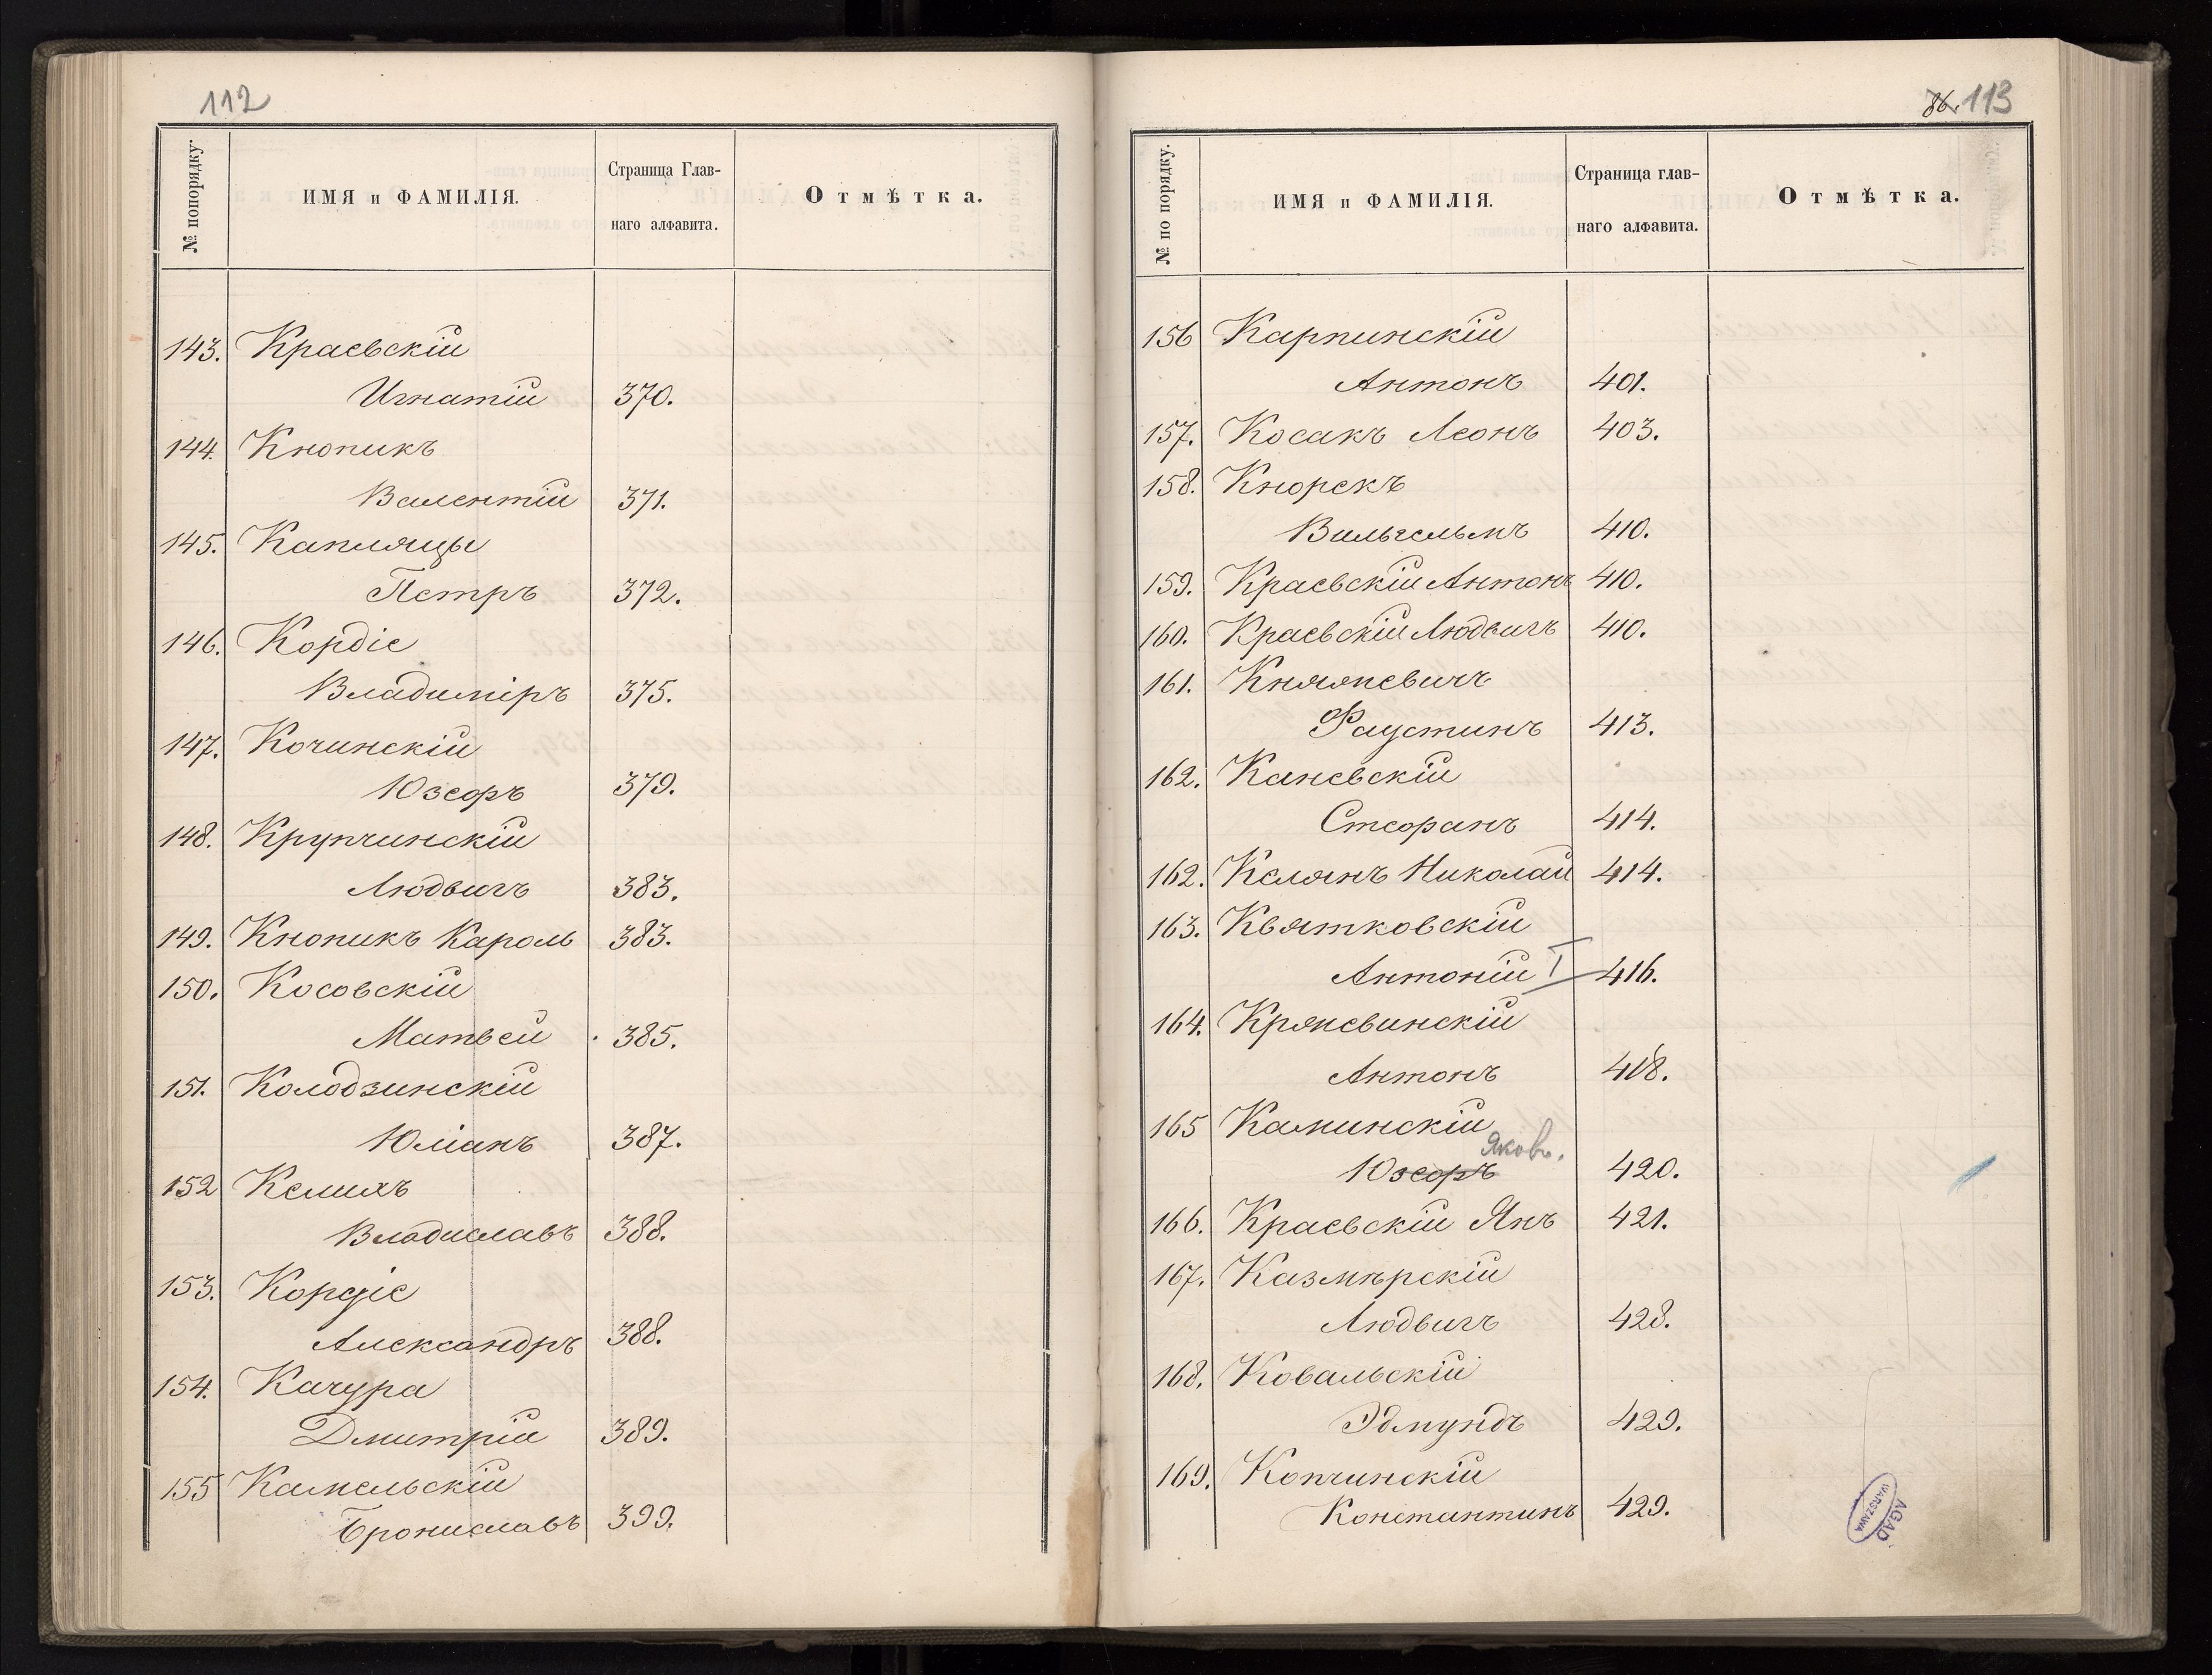 112
№ попорядку.
ИМЯ и ФАМИЛІЯ.
Страница Глав-
наго алфавита.
Отмѣтка.
143. Краевскій
Игнатій 370.
144. Кнопикъ
Валентій 371.
145. Капляцы
Петръ 372.
146. Кордіе
Владиміръ 375.
147. Кочинскій
Юзефъ 379.
148. Крупчинскій
Людвигъ 383.
149. Кнопикъ Кароль 383.
150. Косовскій
Матвей 385.
151. Колодзинскій
Юліанъ 387.
152 Келихъ
Владиславъ 388.
153. Кордіе
Александръ 388.
154. Качура
Дмитрій 389.
155 Камельскій
Брониславъ 399.
86. 113
№ по порядку.
ИМЯ и ФАМИЛІЯ.
Страница глав-
наго алфавита.
Отмѣтка.
156 Карпинскій
Антонъ 401.
157. Косакъ Леонъ 403.
158. Кнорекъ
Вильгельмъ 410.
159. Краевскій Антонъ 410.
160. Краевскій Людвигъ 410.
161. Княжевичъ
Фаустинъ 413.
162. Каневскій
Стефанъ 414.
162. Келянъ Николай 414.
163. Квятковскій
Антоній I 416.
164. Кржевинскій
Антонъ 418.
165 Каминскій
Яковъ.
Юзефъ 420.
166. Краевскій Янъ 421.
167. Казмѣрскій
Людвигъ 428.
168. Ковальскій
Эдмундъ 429.
169. Копчинскій
Константинъ 429.
AGAD
WARSZAWA